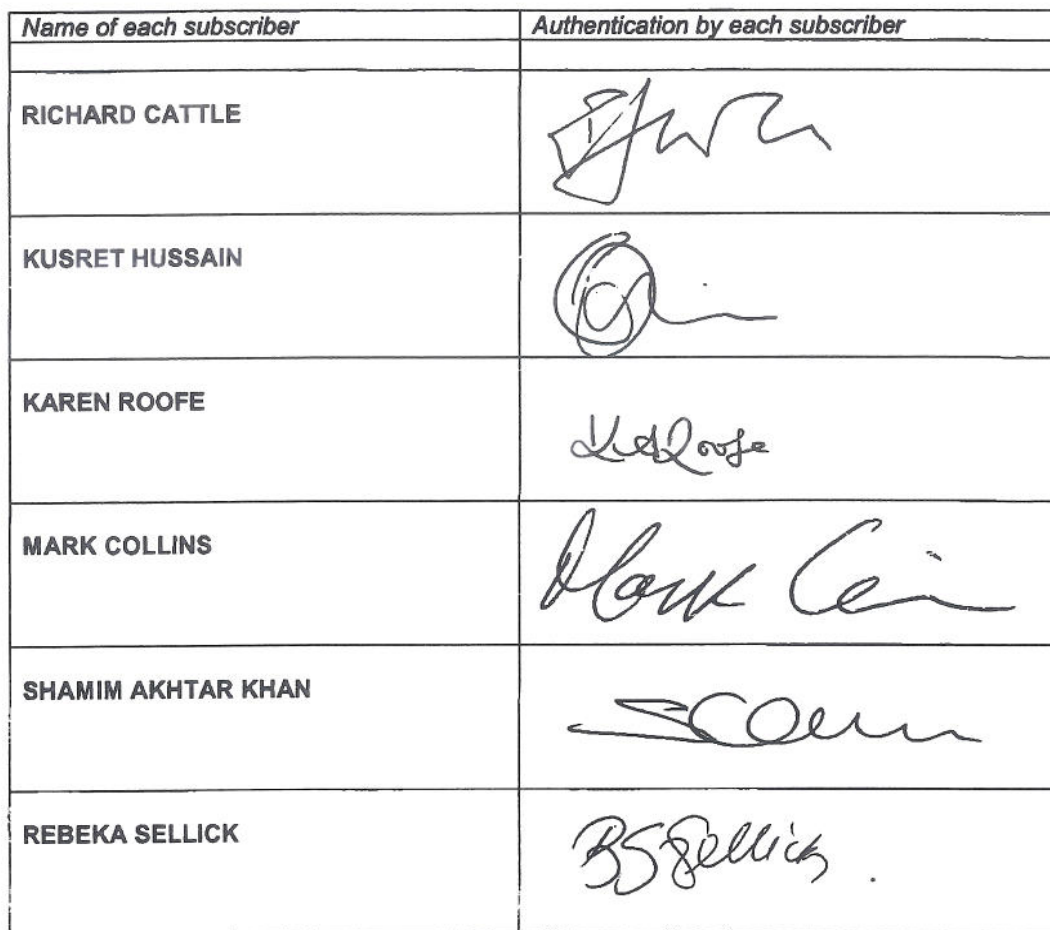 Name of each subscriber Authentication by each subscriber
RICHARD CATTLE
KUSRET HUSSAIN
KAREN ROOFE
K A Roofe
MARK COLLINS
Mark
SHAMIM AKHTAR KHAN
REBEKA SELLICK
BSSellick